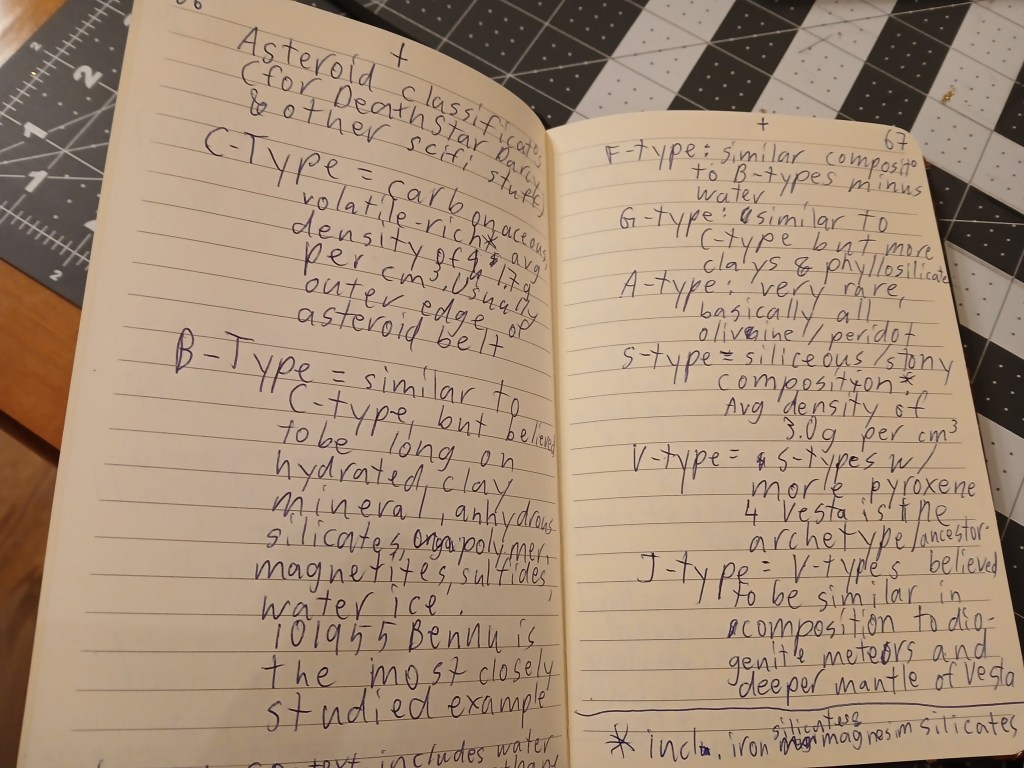 Asteroid classificatn
(for DeathStar Darcy
& other scifi stuff)
C-Type = carbonaceous,
volatile-rich* avg
density of 1.7g
per cm³. Usually
outer edge of
asteroid belt
B-Type = similar to
C-type, but believed
to be long on
hydrated, clay
mineral, anhydrous
silicates, polymer,
magnetites, sulfides,
water ice.
101955 Bennu is
the most closely
studied example
text includes water
67
F-type: similar composito
to B-types minus
water
G-type: similar to
C-type but more
clays & phyllosilicate
A-type: very rare,
basically all
olivine/peridot
S-type = siliceous/stony
composition*.
Avg density of
3.0g per cm³
V-type = S-types w/
more pyroxene
4 Vesta is the
archetype/ancestor
J-type = V-types believed
to be similar in
composition to dio-
genite meteors and
deeper mantle of Vesta
silicates
* incl. iron magnesim silicates
2
1
1
2